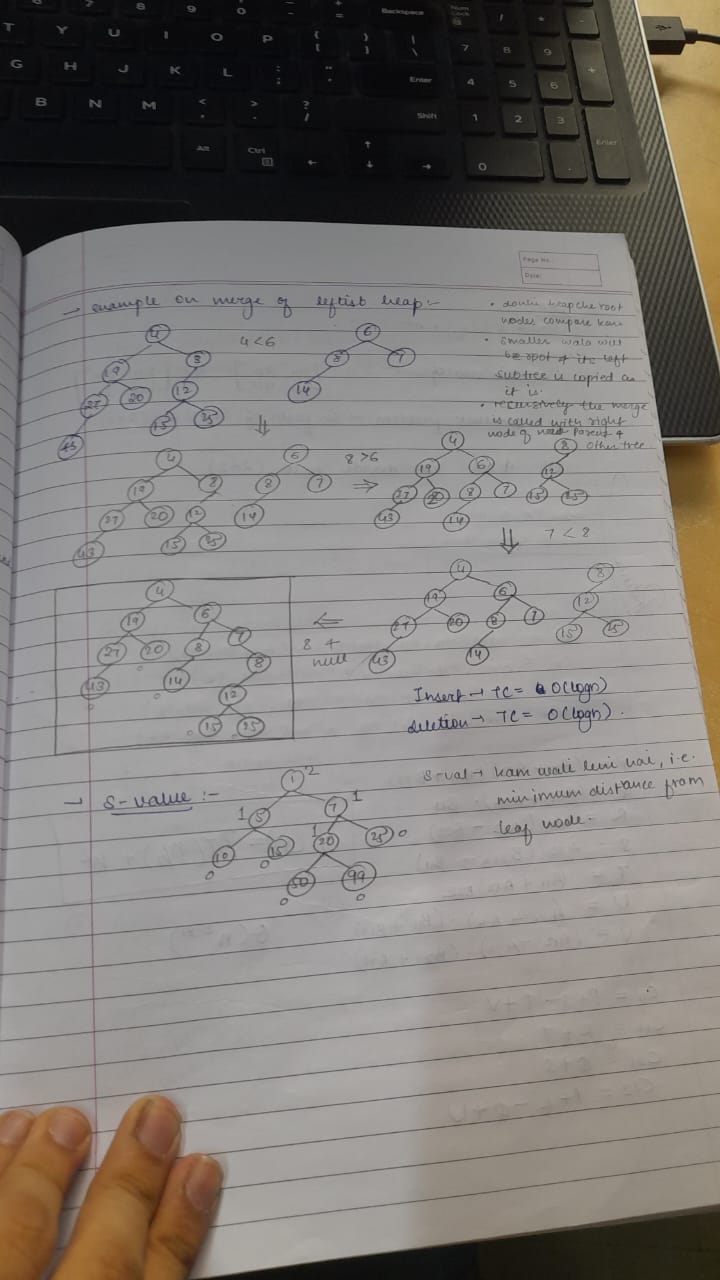 Backspace
Num Lock
T Y U I O P { } | \ 7 8 9 +
G H J K L : ; " ' Enter 4 5 6
B N M < , > . ? / Shift 1 2 3 Enter
Alt Ctrl 0 .
Page No.:
Date:
→ example on merge of leftist heap:-
• donki heap che root
nodes compare karo
• smaller wala will
be root & its left
subtree is copied as
it is.
• recursively the merge
is called with right
node of parent &
other tree
4 8 19 20 27 12 15 25 43
4<6
6 8 7 14
⇓
4 19 8 27 20 12 43 15 25
6 8 7 14
8>6
⇒
4 19 6 27 20 8 7 43 14
8 12 15 25
⇓ 7<8
4 19 6 27 20 8 7 43 14
8 12 15 25
⇐
8 +
null
4 19 6 27 20 8 7 43 14 8 12 15 25
Insert → TC = O(logn)
deletion → TC = O(logn).
→ S-value :-
1 2
5 1 7 1
10 0 15 0 20 1 25 0
50 0 99 0
S-val → kam wali leni hai, i.e.
minimum distance from
leaf node.